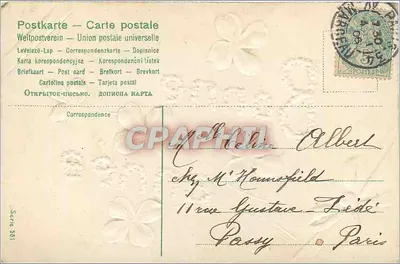 Postkarte – Carte postale
Weltpostverein – Union postale universelle
Levelező-Lap – Correspondenzkarte – Dopisnice
Karta korespondencyjna – Korespondenční listek
Briefkaart – Post card – Brefkort – Brevkort
Cartolina postale – Tarjeta postal
Открытое-письмо. дописна карта
Correspondence
CPAPHIL
Albert
Chez Mr Hounsfield
11 rue Gustave-Zédé
Passy Paris
Serie 501